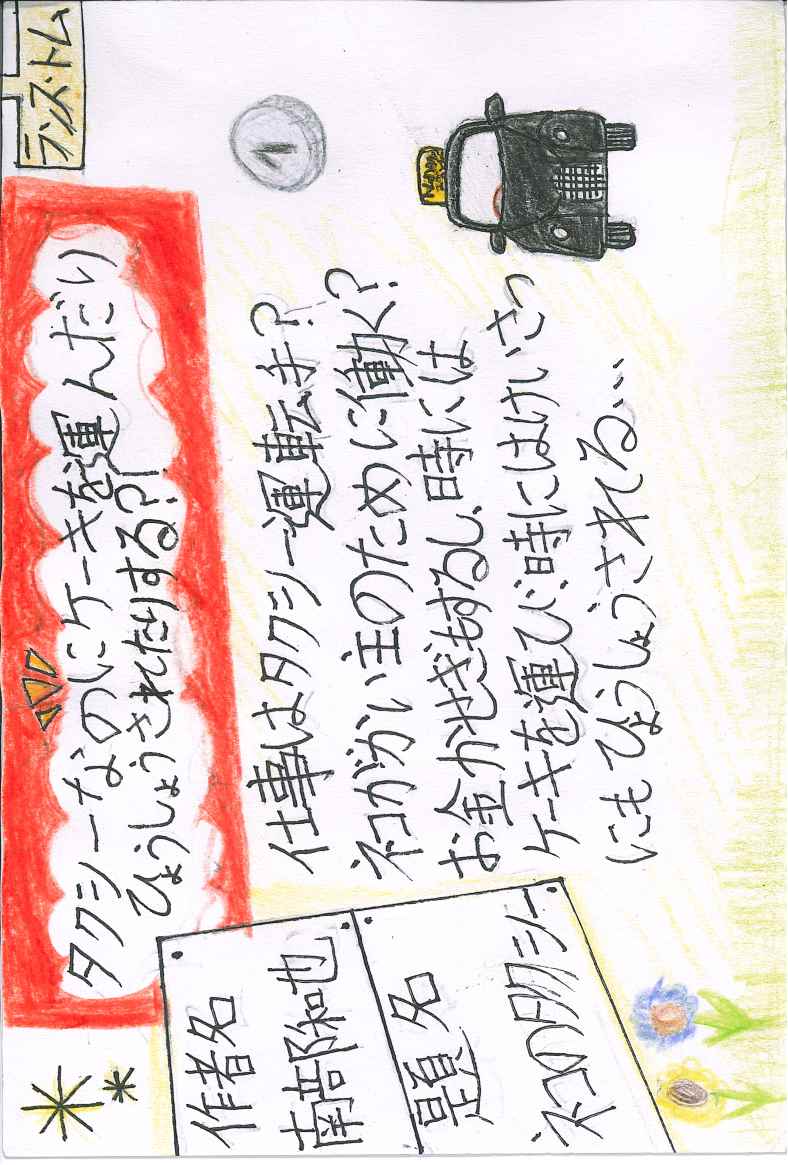 ランス・トム
タクシーなのにケーキを運んだり
ひょうしょうされたりする?!
仕事はタクシー運転手?
ネコがかい主のために働く?
お金かせぎもするし、時には
ケーキを運び、時にはけいさつ
にもひょうしょうされる…
作者名
南部和也
題名
ネコのタクシー